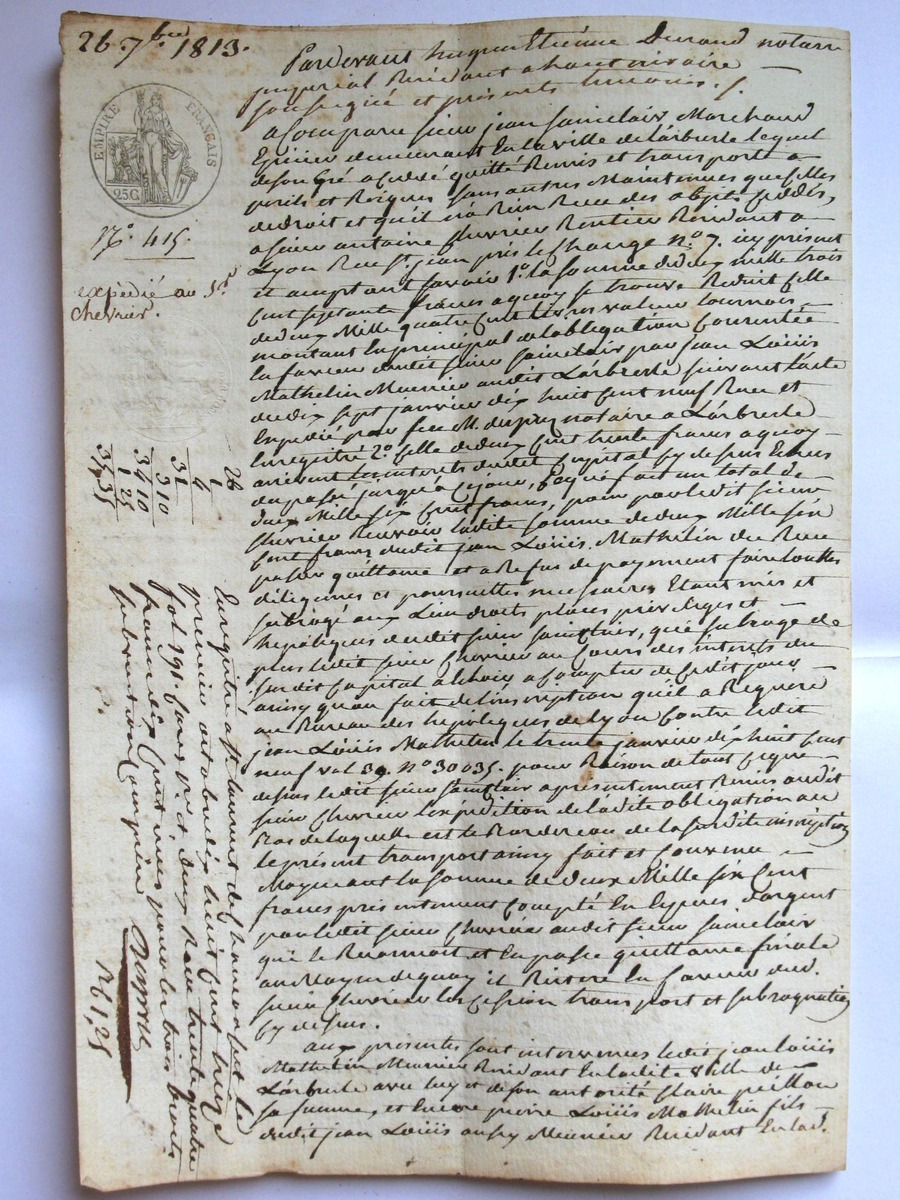 26. 7bre 1813.
Pardevant hugues Etienne Durand notaire
imperial Residant a
soussigné et présents temoins.
EMPIRE FRANÇAIS
25C
N.° 415.
expédié au Sr
chevrier.
a Comparu sieur jean Sainclair Marchand
Epicier demeurant En la ville de Larbresle lequel
de son Gré a cédé quitté Remis et transporté a
perils et Risques sans autres Maintenues que celles
de droit et qu'il n'a Rien Recu des objets Cédés,
a sieur antoine Chevrier Rentier Residant a
Lyon Rue St jean près le Change n.° 7. icy présent
et acceptant savoir 1.° la somme de deux mille trois
cent soixante francs a quoy se trouve Reduit celle
de deux Mille quatre cent livres valeur tournois
montant En principal de l'obligation Consentie
En faveur dudit sieur Sainclair par jean Loüis
Mathelin Meunier audit Larbresle suivant l'acte
du dix sept janvier dix huit cent neuf Recu et
Expédié par feu M. notaire a Larbresle
Enregistré 2.° celle de deux cent trente francs a quoy
arrivent les interets dudit Capital cy dessus Echus
du passé jusqu'a ce jour, ce qui fait un total de
deux Mille six cent francs, pour par ledit sieur
Chevrier Recevoir ladite somme de deux Mille six
cent francs dudit jean Loüis Mathelin du Recu
passer quittance et a Refus de payement faire touttes
diligences et poursuittes necessaires Etant mis et
subrogé aux Lieu droits places privileges et
hepotèques dudit sieur Sainclair, qui subroge de
plus ledit sieur Chevrier au Cours des interets du
susdit Capital a Echoir a Compter de ce dit jour
ainsy qu'au fait de L'inscription qu'il a Requise
au Bureau des hepotèques de Lyon Contre ledit
jean Loüis Mathelin le trente janvier dix huit cent
neuf vol 39. n.° 30035. pour Raison de tout ce que
dessus ledit sieur Sainclair a présentement Remis audit
sieur Chevrier L'expédition de ladite obligation au
Bas de laquelle est le Bordereau de la susdite inscription
le présent transport ainsy fait et Convenu
Moyennant la somme de deux Mille six Cent
francs présentement Compté En Especes d'argent
par ledit sieur Chevrier audit sieur Sainclair
qui le Reconnoit et En passe quittance finale
au Moyen de quoy il Reitere En faveur dud.
sieur Chevrier les Cession transport et subrogation
cy dessus.
aux présentes sont intervenus ledit jean Loüis
Mathelin Meunier Residant En ladite ville de
Larbresle avec luy et de son autorité Claire peillon
sa femme, et Encore pierre Loüis Mathelin fils
dudit jean Loüis aussy Meunier Residant En lad.e
26
1
4
31
3 10
34 10
1 25
35 35
Enregistré a St Laurent de chamousset le
premier octobre dix huit cent treize
fol 190. Cases vre et deux Recu trente quatre
francs dix Cent. inclus pour les trois droits
subvention Comprise
R 61,25